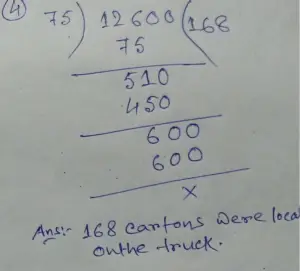 (4) 75) 12600 (168
75
510
450
600
600
x
Ans:- 168 cartons were loca
onthe truck.